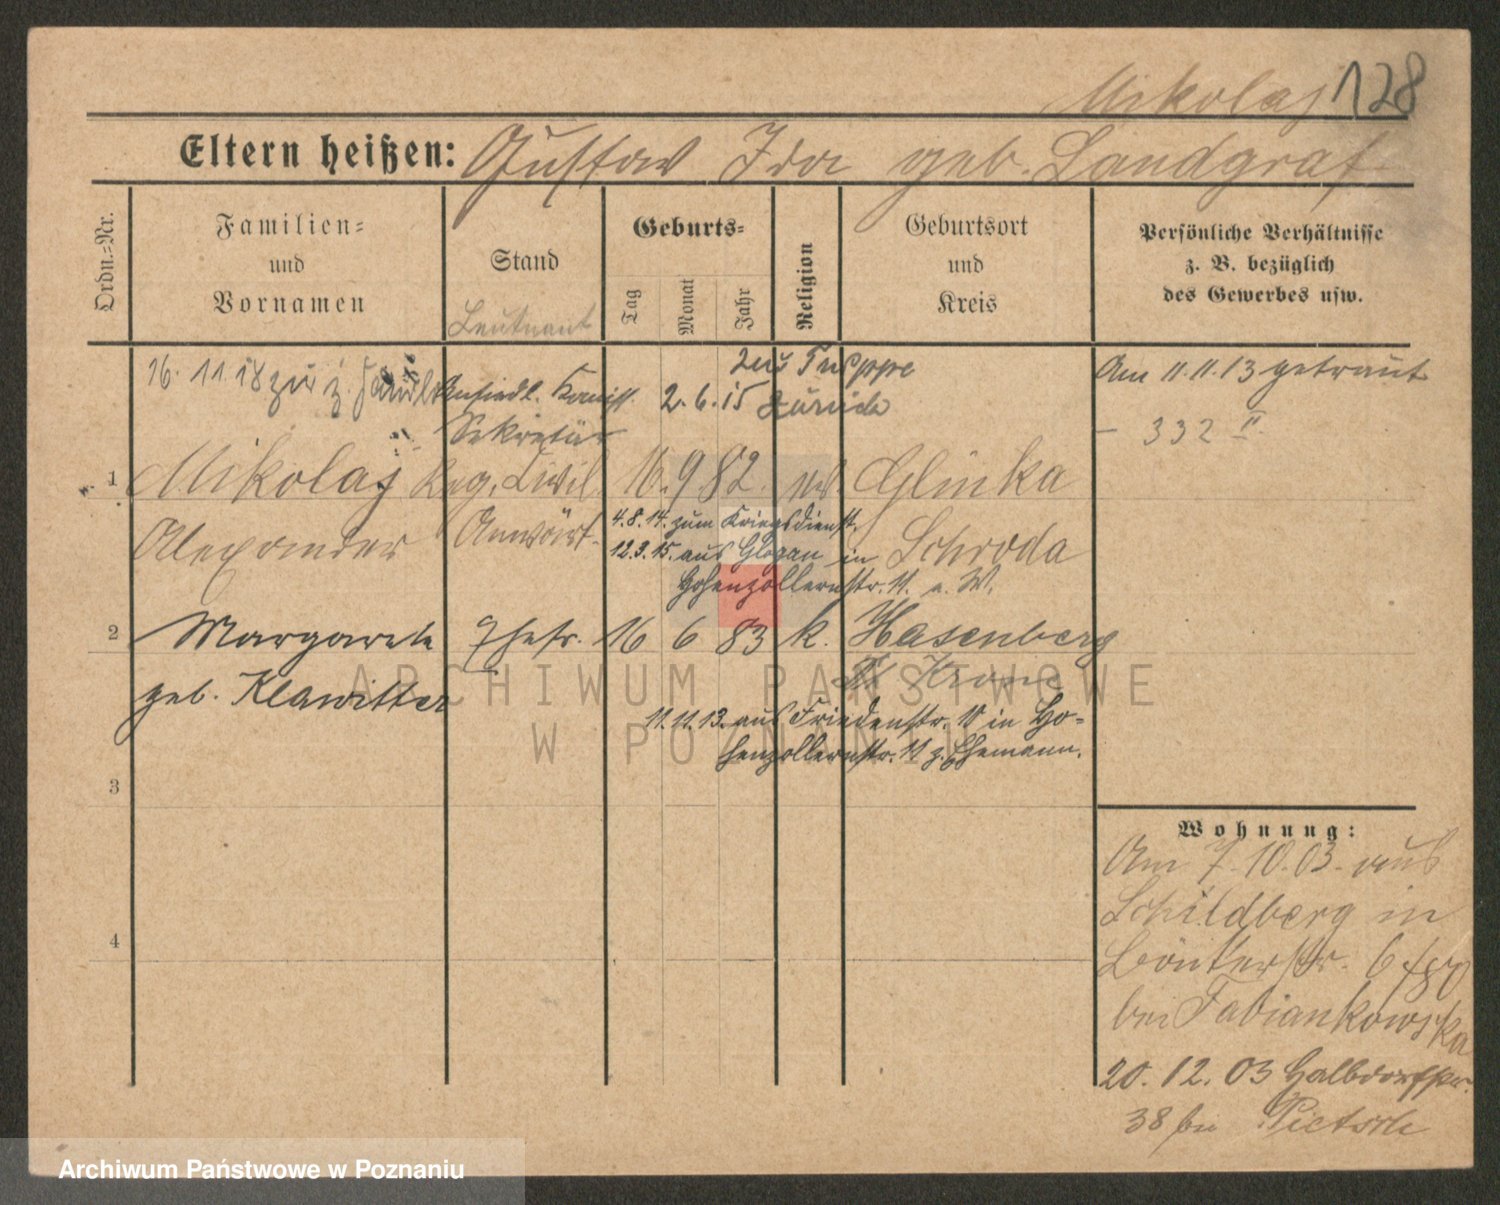 Mikolaj 128
Eltern heißen: Gustav Ida geb. Landgraf
Ordn.-Nr.
Familien-
und
Vornamen
Stand
Leutnant
Geburts-
Tag
Monat
Jahr
Religion
Geburtsort
und
Kreis
Persönliche Verhältnisse
z. B. bezüglich
des Gewerbes usw.
16. 11. 18 zur z. Familie
Ansiedl. Komiss.
Sekretär
zur Truppe
2. 6. 15 zurück
Am 11.11.13 getraut
– 332 II.
1 Mikolaj Reg. Civil. 16. 9 82. ev. Glinka
Alexander Anwärt. Schroda
4.8.14. zum Kriegsdienst.
12.3.15. aus Glogau in
Hohenzollernstr. 11. a. W.
2 Margarete Ehefr. 16 6 83 k. Hasenberg
geb. Klawitter Dt Krone
11.11.13. aus Friedenstr. 10 in Ho-
henzollernstr. 11 z. Ehemann.
3
4
Wohnung:
Am 7.10.03. aus
Schildberg in
Bönkerstr. 6
bei Fabiankowska
20. 12. 03 Halbdorfstr.
38 bei Pietsch
ARCHIWUM PAŃSTWOWE
W POZNANIU
Archiwum Państwowe w Poznaniu